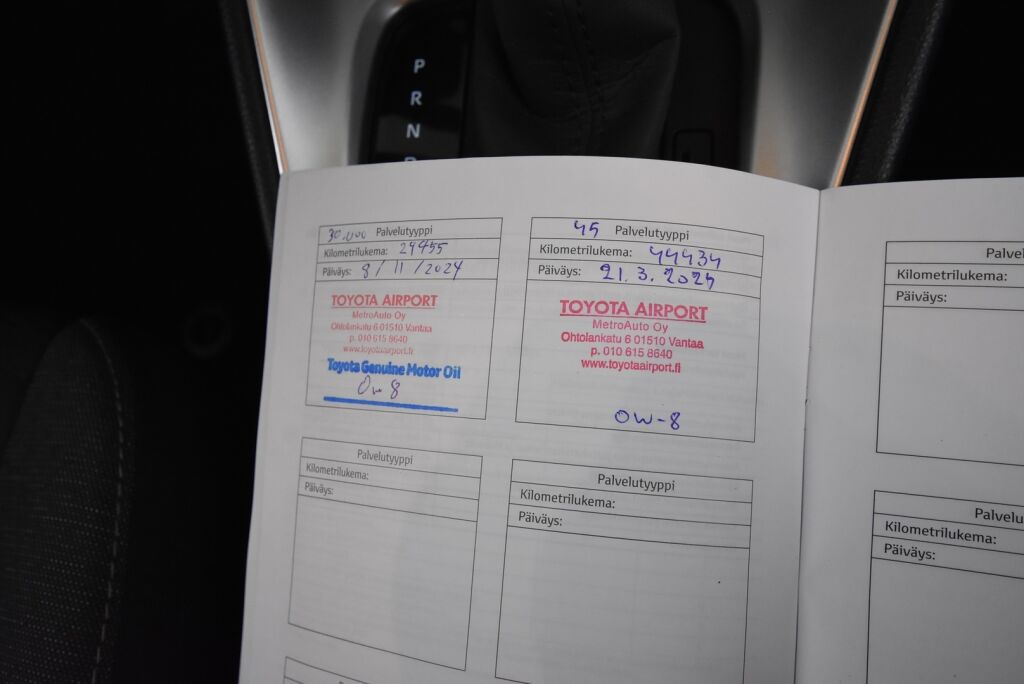 P
R
N
30.000 Palvelutyyppi
Kilometrilukema: 29455
Päiväys: 8/11/2024
TOYOTA AIRPORT
MetroAuto Oy
Ohtolankatu 6 01510 Vantaa
p. 010 615 8640
www.toyotaairport.fi
Toyota Genuine Motor Oil
0w8
45 Palvelutyyppi
Kilometrilukema: 44434
Päiväys: 21.3.2025
TOYOTA AIRPORT
MetroAuto Oy
Ohtolankatu 6 01510 Vantaa
p. 010 615 8640
www.toyotaairport.fi
0W-8
Palvelutyyppi
Kilometrilukema:
Päiväys:
Palvelutyyppi
Kilometrilukema:
Päiväys:
Kilometrilukema:
Päiväys:
Kilometrilukema:
Päiväys: